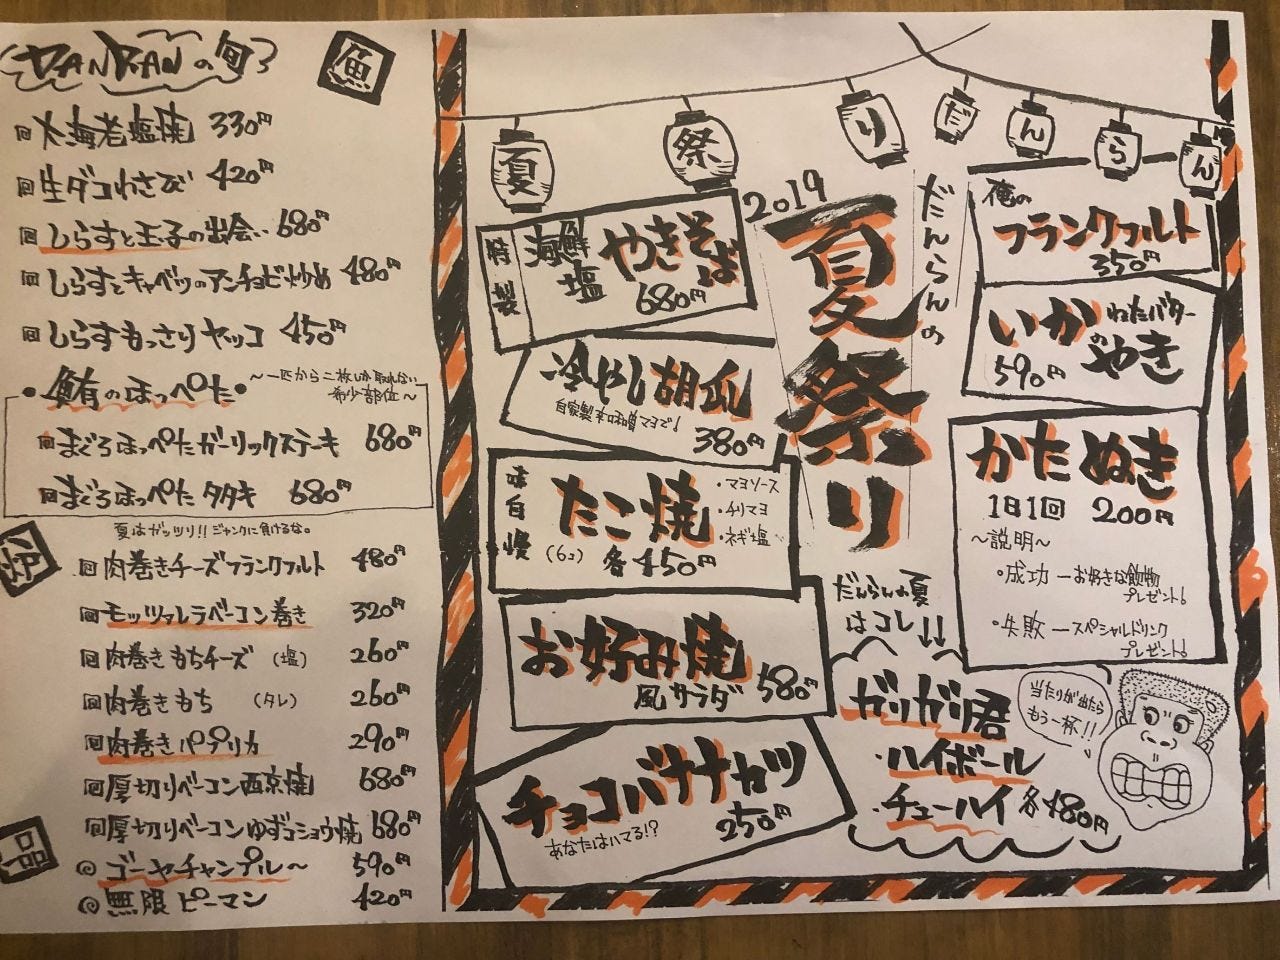 DANRANの旬
魚
大海老塩焼 330円
生ダコわさび 420円
しらすと玉子の出会い 680円
しらすとキャベツのアンチョビ炒め 480円
しらすもっさりヤッコ 450円
鮪のほっぺた
〜一匹から二枚しか取れない
希少部位〜
まぐろほっぺたガーリックステーキ 680円
まぐろほっぺたタタキ 680円
夏はガッツリ!!ジャンクに負けるな。
炉
肉巻きチーズフランクフルト 480円
モッツァレラベーコン巻き 320円
肉巻きもちチーズ (塩) 260円
肉巻きもち (タレ) 260円
肉巻きパプリカ 290円
厚切りベーコン西京焼 680円
厚切りベーコンゆずコショウ焼 680円
品
ゴーヤーチャンプル〜 590円
無限ピーマン 420円
夏
祭
り
だ
ん
ら
ん
2019
だんらんの
夏祭り
海鮮
塩
やきそば
680円
冷やし胡瓜
自家製辛味噌マヨで!
380円
味自慢
たこ焼
(6コ) 各450円
・マヨソース
・チリマヨ
・ネギ塩
お好み焼
風サラダ 580円
チョコバナナカツ
あなたはハマる!?
250円
俺の
フランクフルト
350円
いかの
わたバター
やき
590円
かたぬき
1日1回 200円
〜説明〜
・成功ーお好きな飲物
プレゼント!
・失敗ースペシャルドリンク
プレゼント!
だんらんの夏
はコレ↓↓
ガリガリ君
・ハイボール
・チューハイ 各480円
当たりが出たら
もう一杯!!